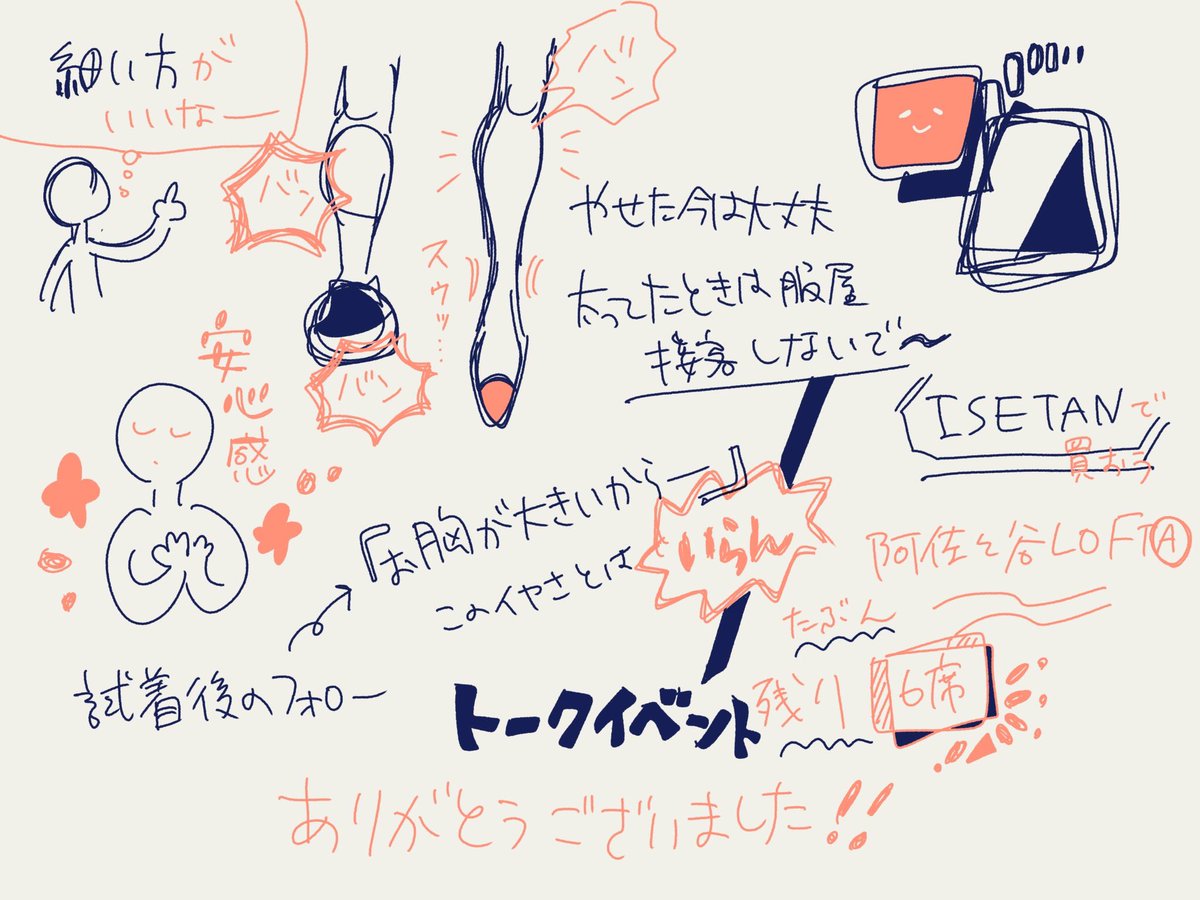 細い方が
いいなー
バン
バン
バン
スウッ…
やせた今は大丈夫
太ってたときは服屋
接客しないで〜
安心感
ISETANで
買おう
『お胸が大きいからー』
このイヤさとは
いらん
阿佐ヶ谷LOFTA
試着後のフォロー
トークイベント
たぶん
残り
6席
ありがとうございました!!